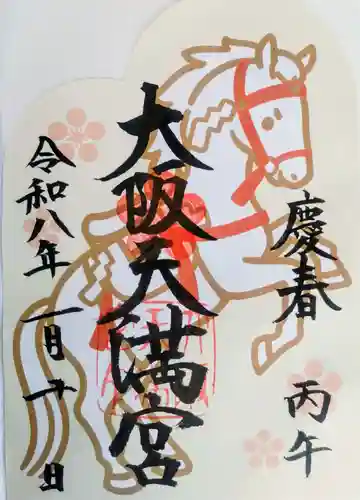 慶春
丙午
大阪天満宮
令和八年一月十一日